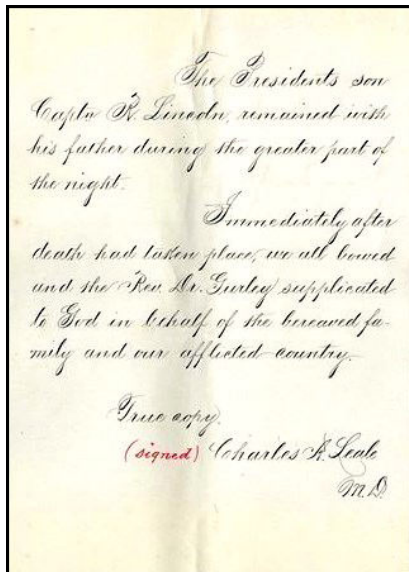 The Presidents son
Captn R. Lincoln, remained with
his father during the greater part of
the night.
Immediately after
death had taken place, we all bowed
and the Rev. Dr. Gurley supplicated
to God in behalf of the bereaved fa-
mily and our afflicted country.
True copy.
(signed) Charles A. Leale
M.D.